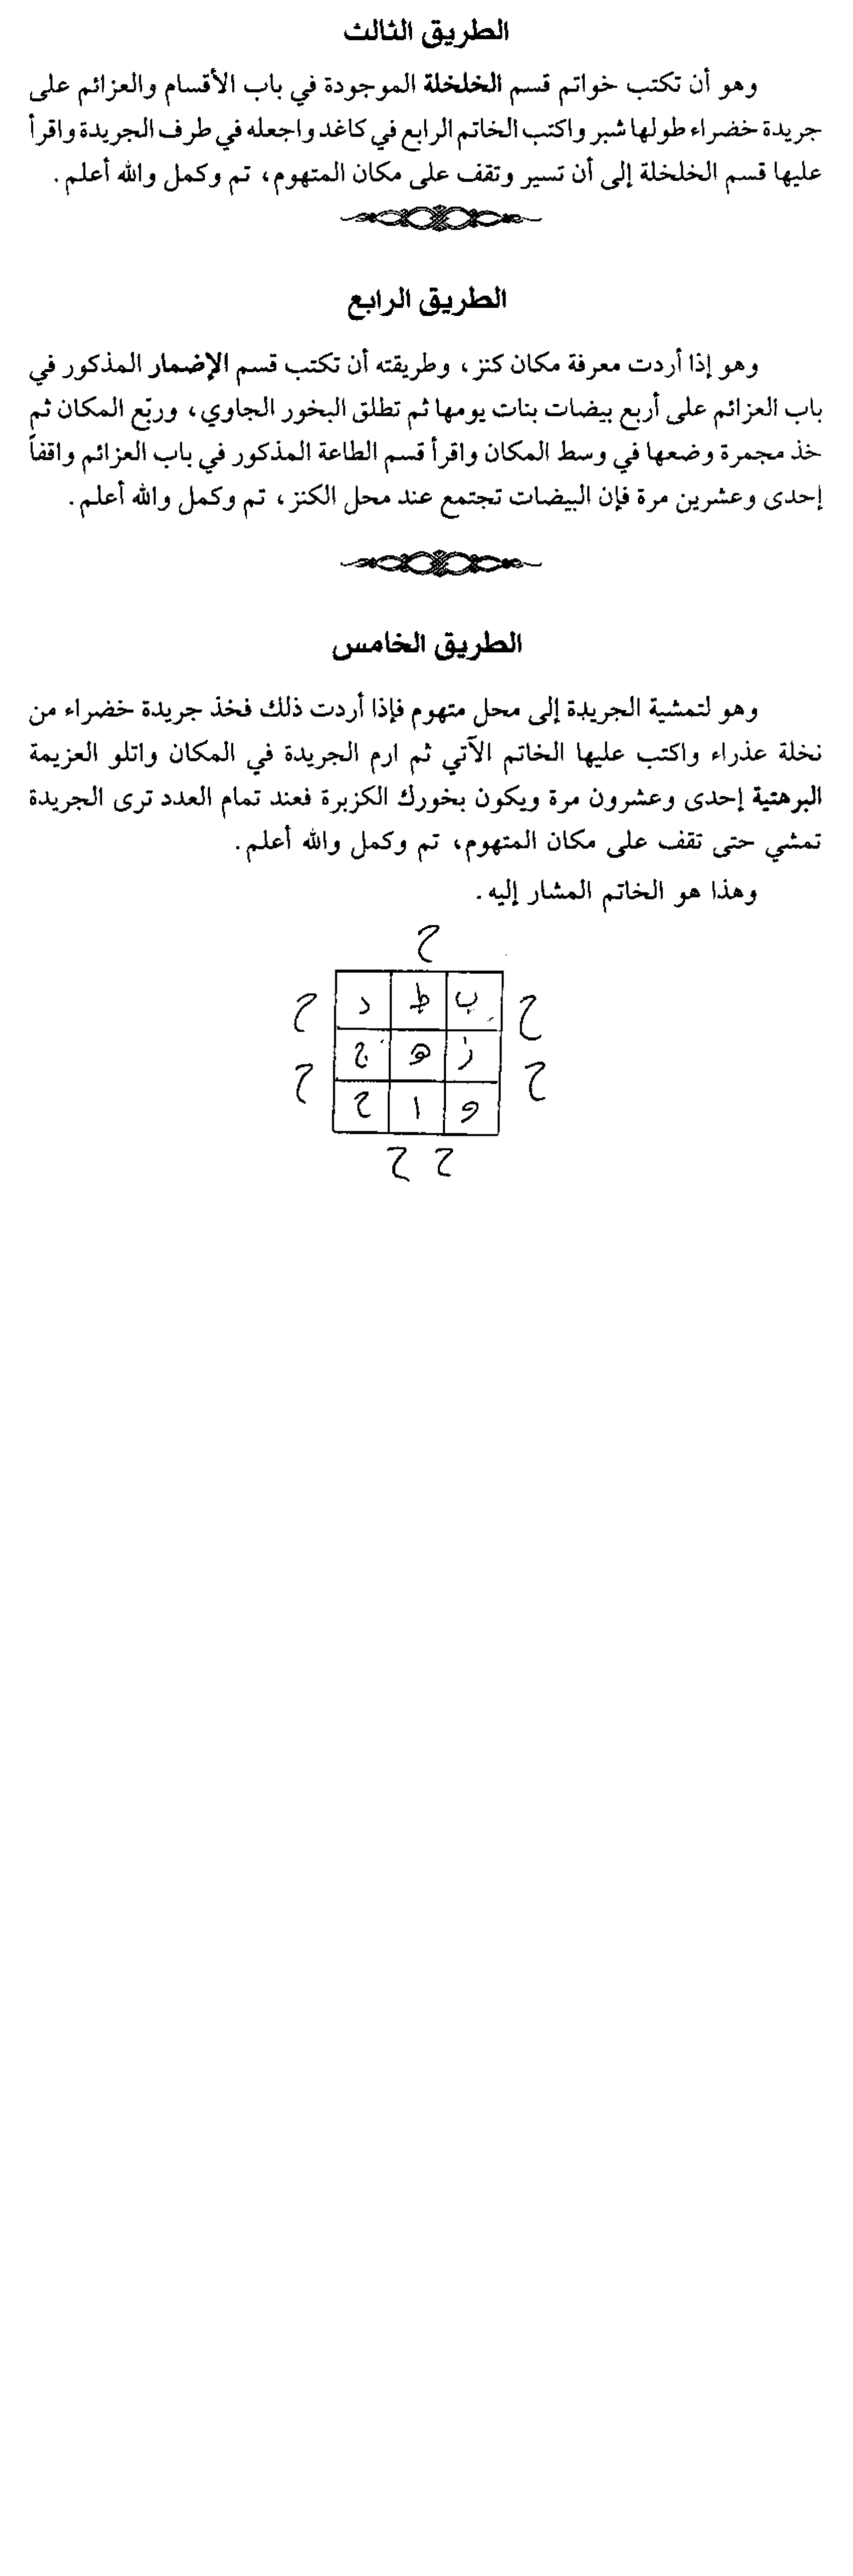 الطريق الثالث
وهو أن تكتب خواتم قسم الخلخلة الموجودة في باب الأقسام والعزائم على
جريدة خضراء طولها شبر واكتب الخاتم الرابع في كاغد واجعله في طرف الجريدة واقرأ
عليها قسم الخلخلة إلى أن تسير وتقف على مكان المتهوم، تم وكمل والله أعلم.
الطريق الرابع
وهو إذا أردت معرفة مكان كنز، وطريقته أن تكتب قسم الإضمار المذكور في
باب العزائم على أربع بيضات بنات يومها ثم تطلق البخور الجاوي، وربّع المكان ثم
خذ مجمرة وضعها في وسط المكان واقرأ قسم الطاعة المذكور في باب العزائم واقفاً
إحدى وعشرين مرة فإن البيضات تجتمع عند محل الكنز، تم وكمل والله أعلم.
الطريق الخامس
وهو لتمشية الجريدة إلى محل متهوم فإذا أردت ذلك فخذ جريدة خضراء من
نخلة عذراء واكتب عليها الخاتم الآتي ثم ارم الجريدة في المكان واتلو العزيمة
البرهتية إحدى وعشرون مرة ويكون بخورك الكزبرة فعند تمام العدد ترى الجريدة
تمشي حتى تقف على مكان المتهوم، تم وكمل والله أعلم.
وهذا هو الخاتم المشار إليه.
ح
ح ب ط د ح
ز ه ج
ح ح
و ا ح
ح ح